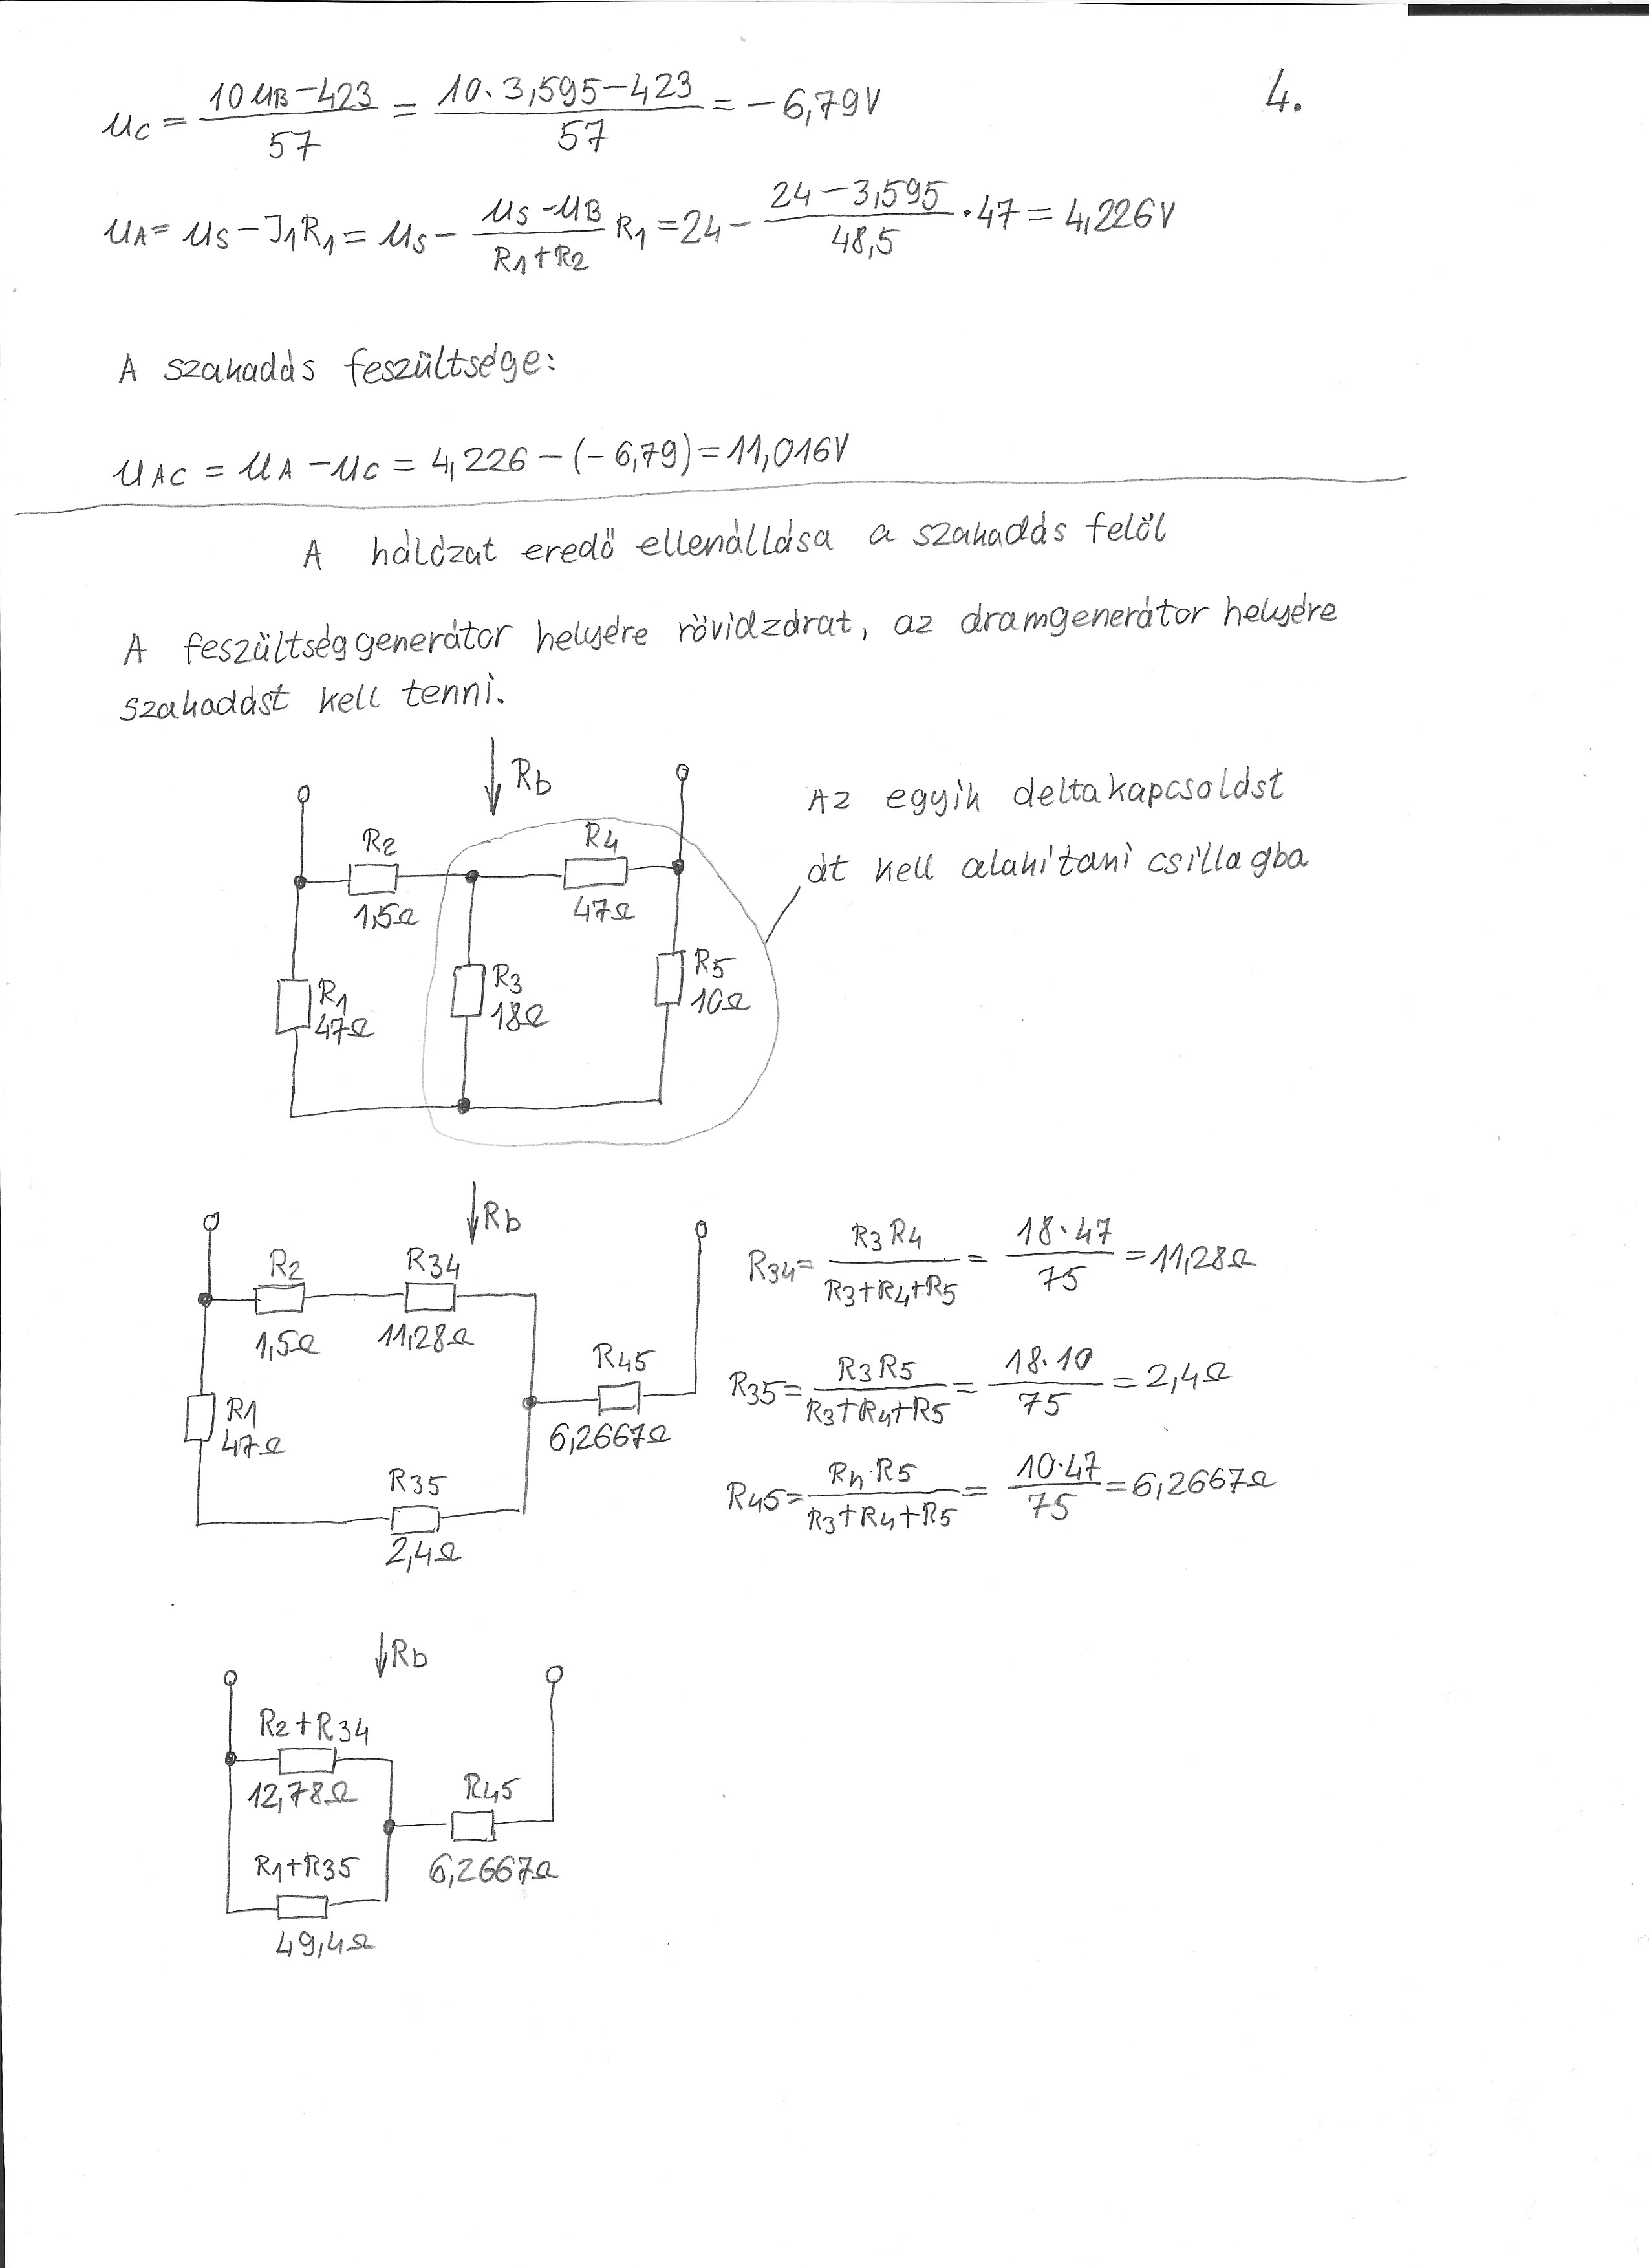 4.
uC = (10uB−423)/57 = (10·3,595−423)/57 = −6,79V
uA = uS−J1R1 = uS− (uS−uB)/(R1+R2) R1 = 24− (24−3,595)/48,5 ·47 = 4,226V
A szakadás feszültsége:
uAC = uA−uC = 4,226−(−6,79) = 11,016V
A hálózat eredő ellenállása a szakadás felől
A feszültséggenerátor helyére rövidzárat, az áramgenerátor helyére
szakadást kell tenni.
Rb
Az egyik deltakapcsolást
át kell alakítani csillagba
R2
1,5Ω
R4
47Ω
R1
47Ω
R3
18Ω
R5
10Ω
Rb
R2
1,5Ω
R34
11,28Ω
R45
6,2667Ω
R1
47Ω
R35
2,4Ω
R34 = R3R4/(R3+R4+R5) = 18·47/75 = 11,28Ω
R35 = R3R5/(R3+R4+R5) = 18·10/75 = 2,4Ω
R45 = R4·R5/(R3+R4+R5) = 10·47/75 = 6,2667Ω
Rb
R2+R34
12,78Ω
R45
6,2667Ω
R1+R35
49,4Ω